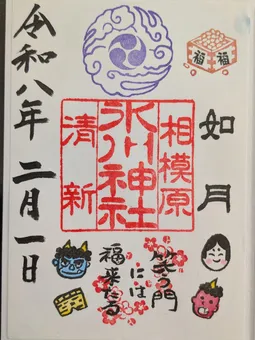 如月
福 福
相模原
氷川神社
清新
笑う門
には
福来たる
令和八年 二月一日